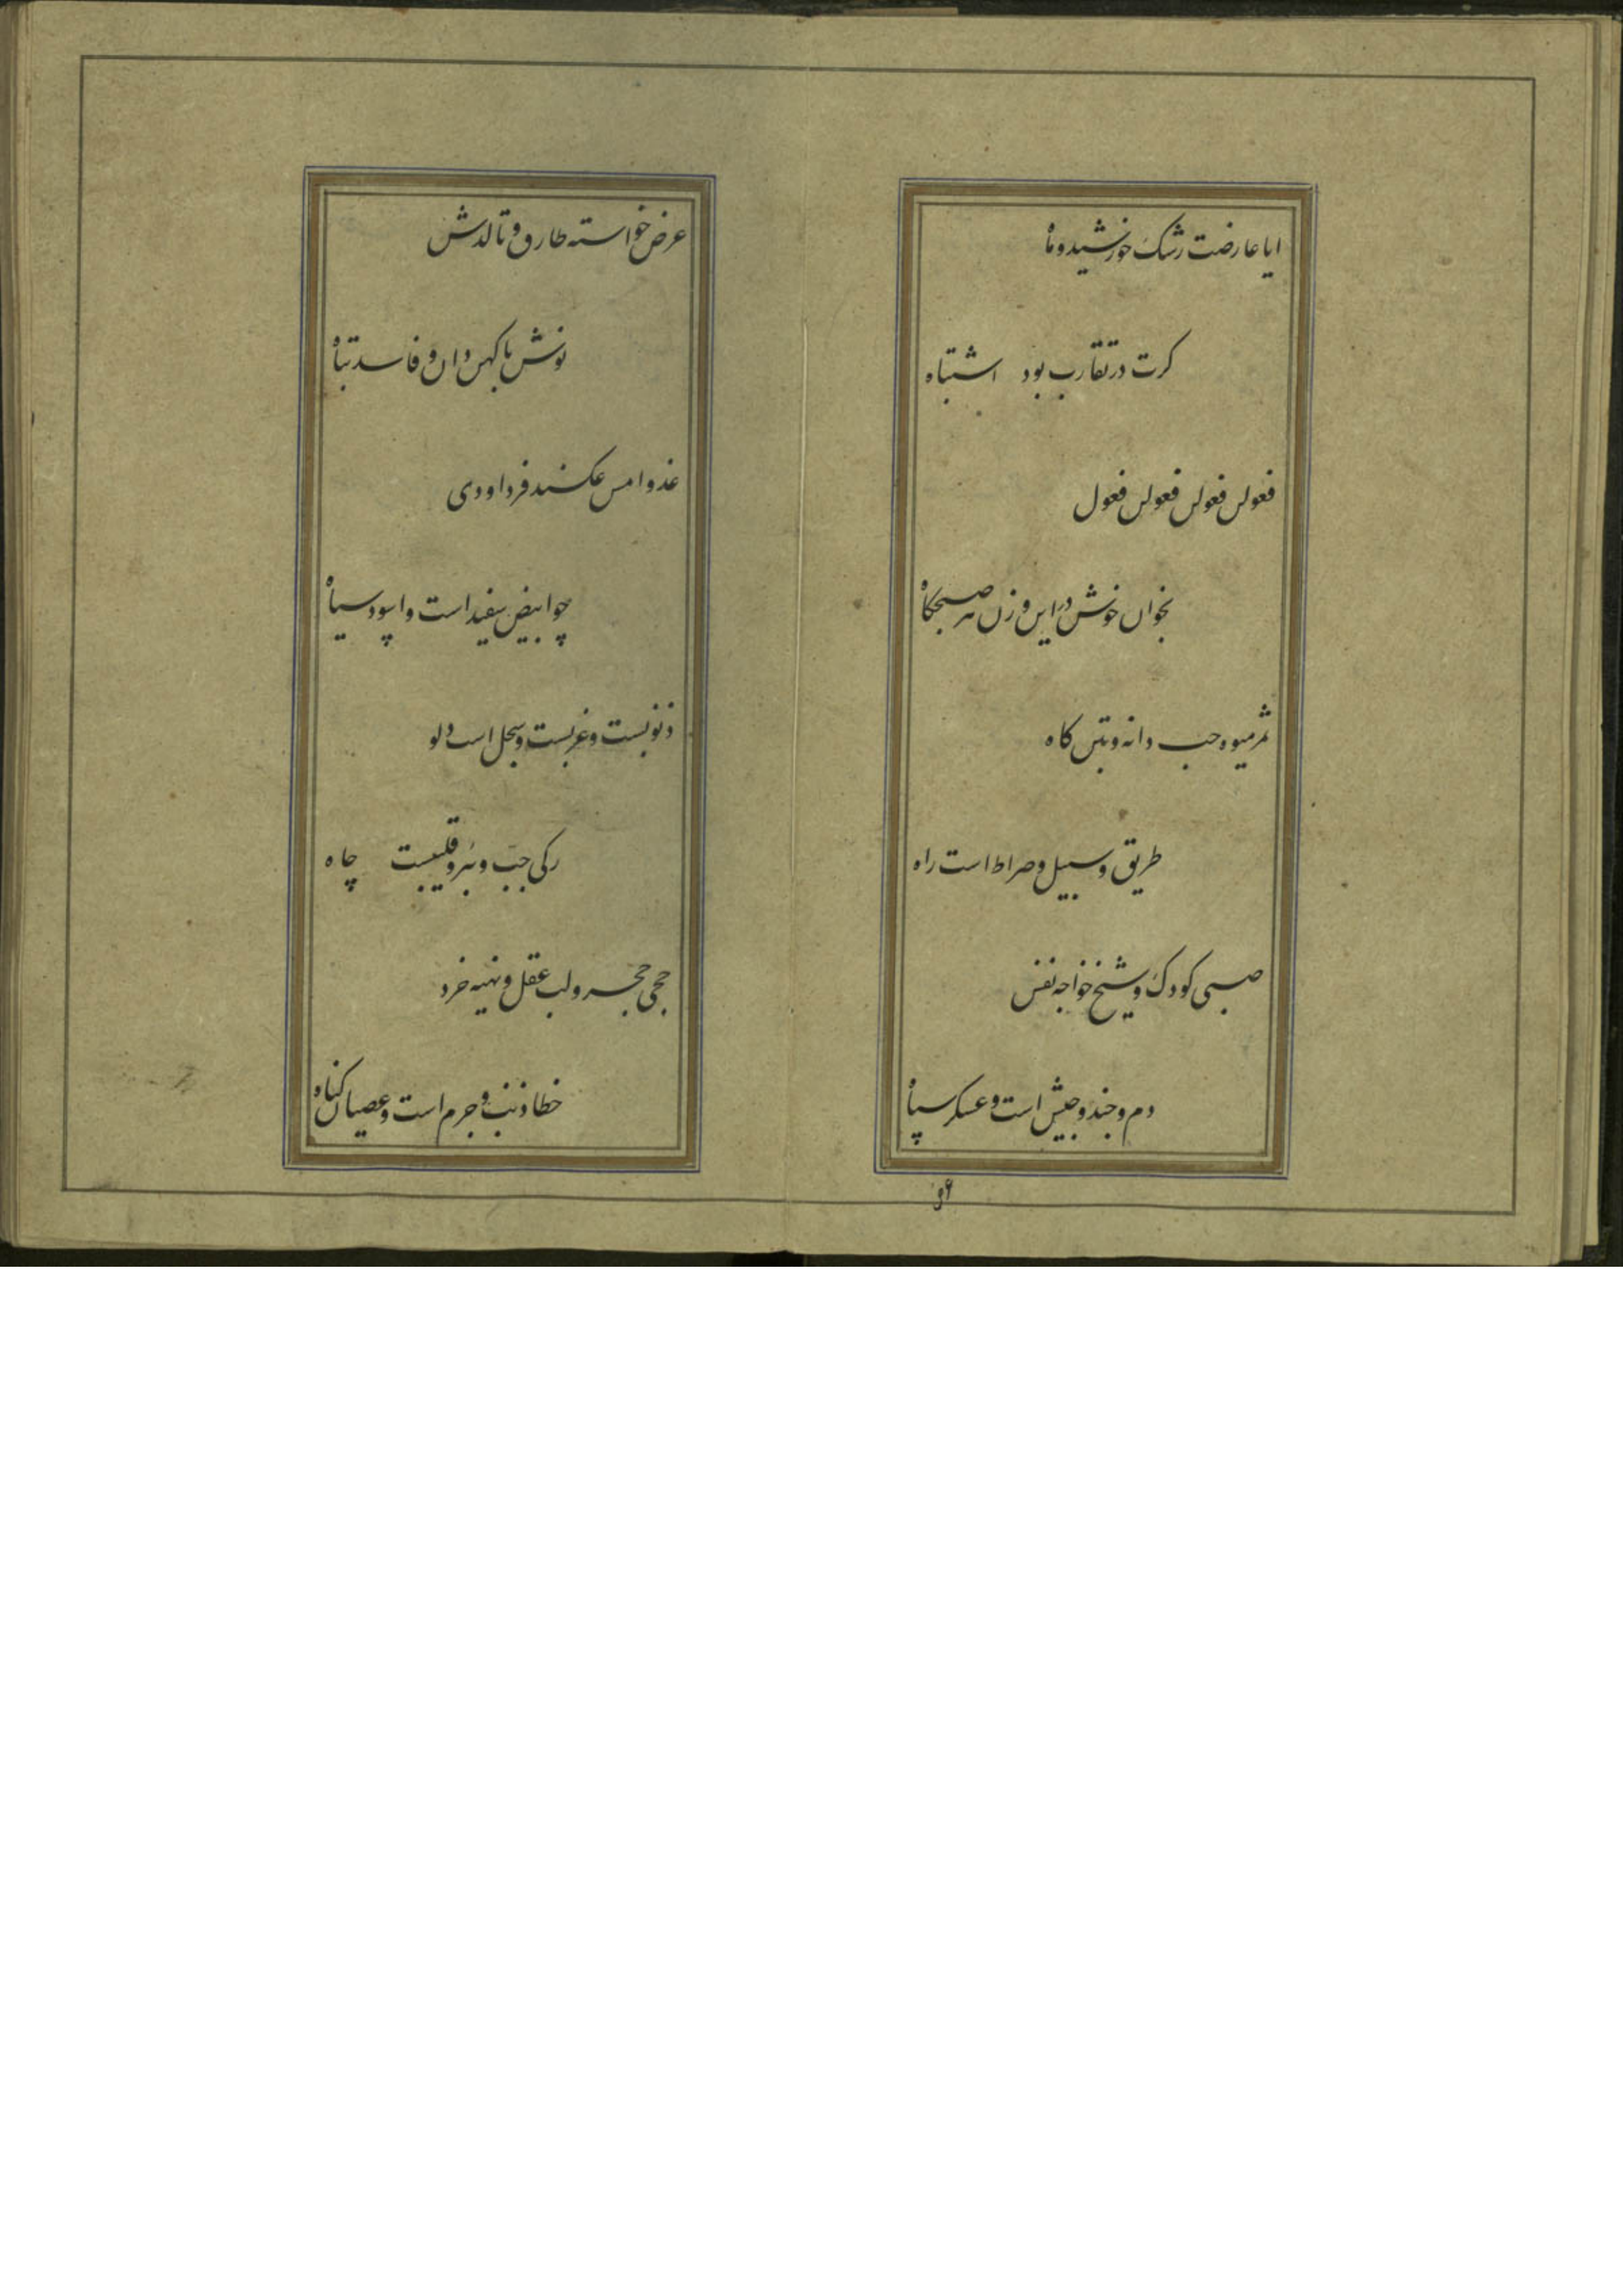 ایا عارضت رشک خورشید و ماه
کرت در تقارب بود اشتباه
فعولن فعولن فعولن فعول
بخوان خوش در این وزن هر صبحکاه
ثمر میوه و حب دانه و تبن کاه
طریق و سبیل و صراط است راه
صبی کودک و شیخ خواجه نفس
دم و جند و جیش است و عسکر سپاه
عرض خواسته طارف و تالدش
نوش با کهن دان و فاسد تباه
غد و امس عکسند فردا و دی
چو ابیض سفید است و اسود سیاه
ذنوبست و غربست و سجل است دلو
رکی جب و بئر و قلیبست چاه
حجی حجر و لب عقل و نهیه خرد
خطا ذنب و جرم است و عصیان کناه